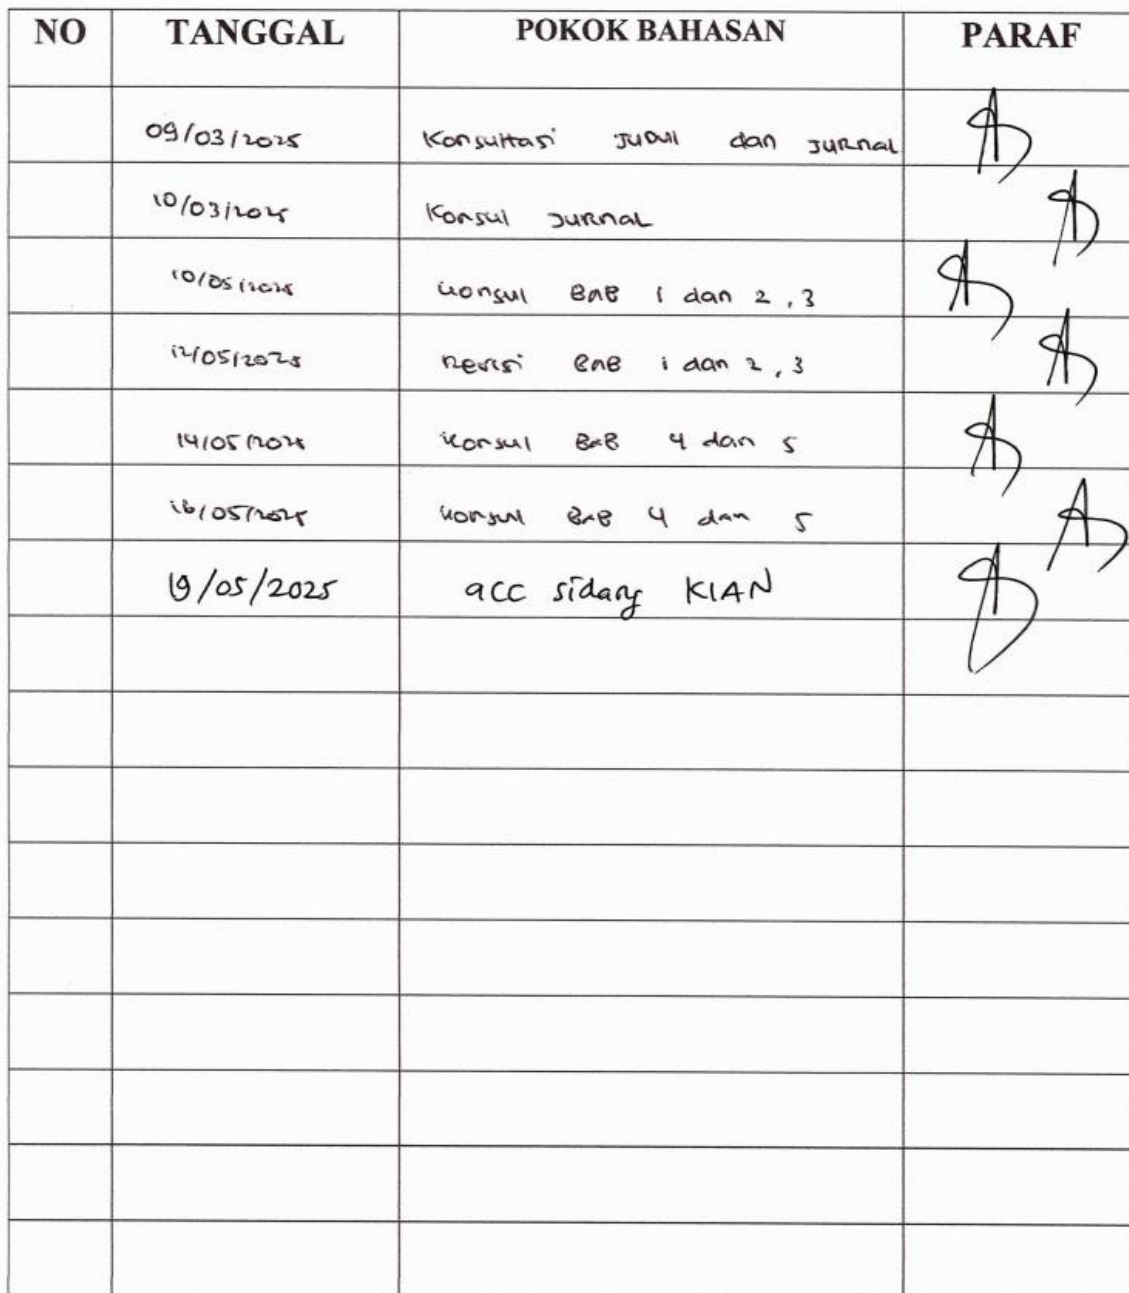 NO TANGGAL POKOK BAHASAN PARAF
09/03/2025 Konsultasi Judul dan Jurnal
10/03/2025 Konsul Jurnal
10/05/2025 Konsul BAB 1 dan 2, 3
12/05/2025 Revisi BAB 1 dan 2, 3
14/05/2025 Konsul BAB 4 dan 5
16/05/2025 Konsul BAB 4 dan 5
19/05/2025 acc sidang KIAN